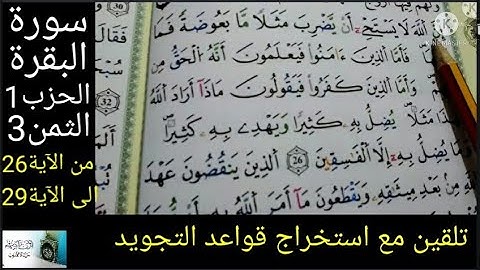 سورة
البقرة
الحزب1
الثمن3
من الآية26
الى الآية29
اللَّهَ لَا يَسْتَحْيِ أَنْ يَّضْرِبَ مَثَلًا مَّا بَعُوضَةً فَمَا
فَأَمَّا الَّذِينَ ءَامَنُوا فَيَعْلَمُونَ أَنَّهُ الْحَقُّ مِن
وَأَمَّا الَّذِينَ كَفَرُوا فَيَقُولُونَ مَاذَا أَرَادَ اللَّهُ
مَثَلًا يُضِلُّ بِهِ كَثِيرًا وَيَهْدِي بِهِ كَثِيرًا
يُضِلُّ بِهِ إِلَّا الْفَٰسِقِينَ 26 الَّذِينَ يَنقُضُونَ عَهْدَ
مِن بَعْدِ مِيثَٰقِهِ وَيَقْطَعُونَ مَا أَمَرَ اللَّهُ
32
تلقين مع استخراج قواعد التجويد